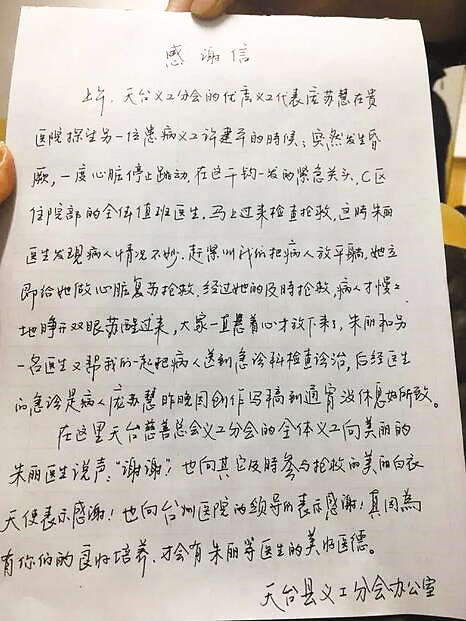 感谢信
上午，天台义工分会的优秀义工代表庞苏慧在贵
医院探望另一位患病义工许建平的时候，突然发生昏
厥，一度心脏停止跳动，在这千钧一发的紧急关头，C区
住院部的全体值班医生，马上过来检查抢救，这时朱丽
医生发现病人情况不妙，赶紧叫我们把病人放平躺，她立
即给她做心脏复苏抢救，经过她的及時抢救，病人才慢々
地睁开双眼苏醒过来，大家一直悬着心才放下来了，朱丽和另
一名医生又帮我们一起把病人送到急诊科检查诊治，后经医生
的急诊是病人庞苏慧昨晚因创作写稿到通宵没休息好所致。
在这里天台慈善总会义工分会的全体义工向美丽的
朱丽医生说声："谢谢"！也向其它及時参与抢救的美丽白衣
天使表示感谢！也向台州医院的领导们表示感谢！真因為
有你们的良好培养，才会有朱丽等医生的美好医德。
天台县义工分会办公室